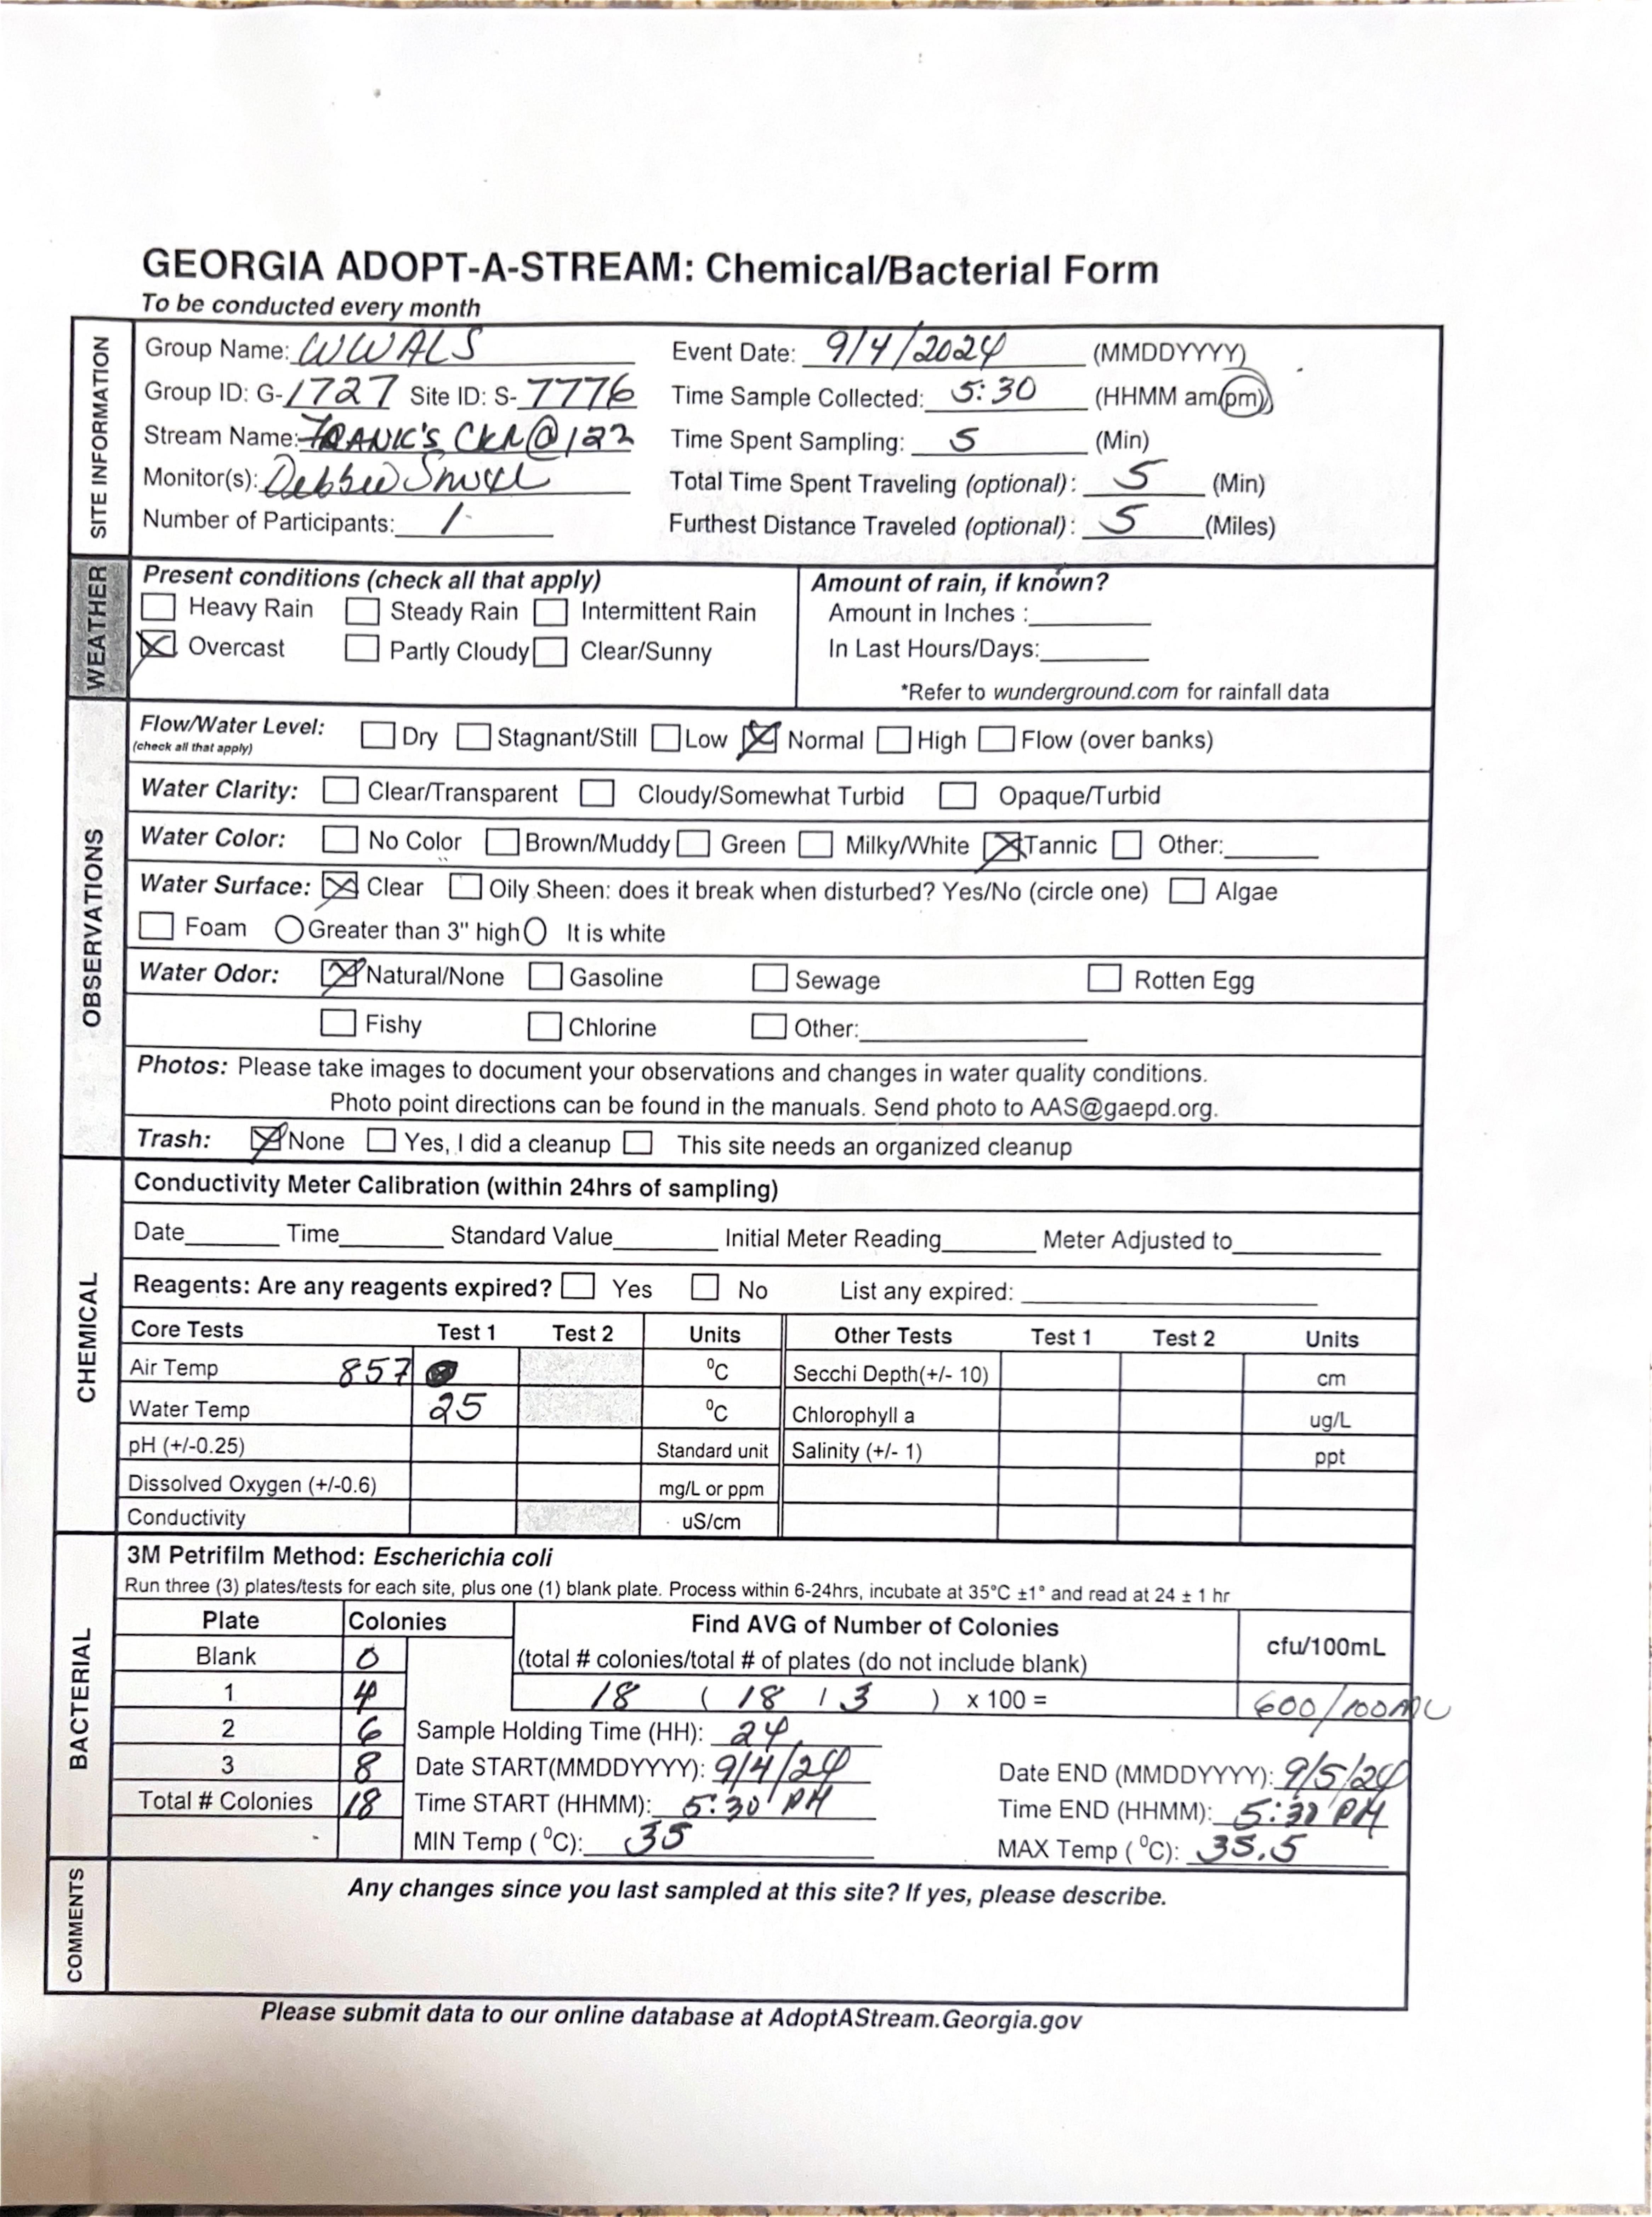 GEORGIA ADOPT-A-STREAM: Chemical/Bacterial Form
To be conducted every month
SITE INFORMATION
Group Name: WWALS Event Date: 9/4/2024 (MMDDYYYY)
Group ID: G-1727 Site ID: S-7776 Time Sample Collected: 5:30 (HHMM am/pm)
Stream Name: FRANK'S CKR@122 Time Spent Sampling: 5 (Min)
Monitor(s): Debbie Total Time Spent Traveling (optional): 5 (Min)
Number of Participants: 1 Furthest Distance Traveled (optional): 5 (Miles)
WEATHER
Present conditions (check all that apply) Amount of rain, if known?
Heavy Rain Steady Rain Intermittent Rain Amount in Inches :
Overcast Partly Cloudy Clear/Sunny In Last Hours/Days:
*Refer to wunderground.com for rainfall data
OBSERVATIONS
Flow/Water Level: Dry Stagnant/Still Low Normal High Flow (over banks)
(check all that apply)
Water Clarity: Clear/Transparent Cloudy/Somewhat Turbid Opaque/Turbid
Water Color: No Color Brown/Muddy Green Milky/White Tannic Other:
Water Surface: Clear Oily Sheen: does it break when disturbed? Yes/No (circle one) Algae
Foam Greater than 3" high It is white
Water Odor: Natural/None Gasoline Sewage Rotten Egg
Fishy Chlorine Other:
Photos: Please take images to document your observations and changes in water quality conditions.
Photo point directions can be found in the manuals. Send photo to AAS@gaepd.org.
Trash: None Yes, I did a cleanup This site needs an organized cleanup
CHEMICAL
Conductivity Meter Calibration (within 24hrs of sampling)
Date Time Standard Value Initial Meter Reading Meter Adjusted to
Reagents: Are any reagents expired? Yes No List any expired:
Core Tests Test 1 Test 2 Units Other Tests Test 1 Test 2 Units
Air Temp 857 ⁰C Secchi Depth(+/- 10) cm
Water Temp 25 ⁰C Chlorophyll a ug/L
pH (+/-0.25) Standard unit Salinity (+/- 1) ppt
Dissolved Oxygen (+/-0.6) mg/L or ppm
Conductivity uS/cm
BACTERIAL
3M Petrifilm Method: Escherichia coli
Run three (3) plates/tests for each site, plus one (1) blank plate. Process within 6-24hrs, incubate at 35°C ±1° and read at 24 ± 1 hr
Plate Colonies Find AVG of Number of Colonies cfu/100mL
Blank 0 (total # colonies/total # of plates (do not include blank)
1 4 18 ( 18 / 3 ) x 100 = 600/100ML
2 6 Sample Holding Time (HH): 24
3 8 Date START(MMDDYYYY): 9/4/24 Date END (MMDDYYYY): 9/5/24
Total # Colonies 18 Time START (HHMM): 5:30 PM Time END (HHMM): 5:30 PM
MIN Temp (⁰C): 35 MAX Temp (⁰C): 35.5
COMMENTS
Any changes since you last sampled at this site? If yes, please describe.
Please submit data to our online database at AdoptAStream.Georgia.gov